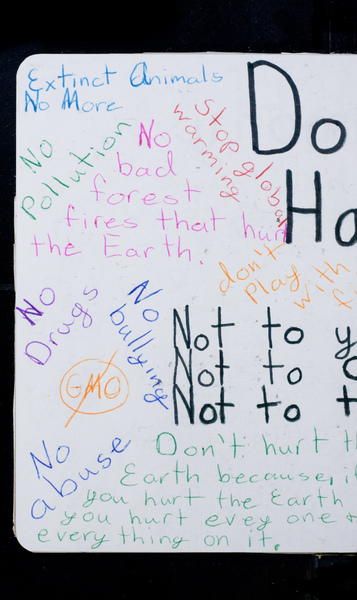 Extinct Animals
No More
Do
No
Pollution
No
bad
forest
fires that hurt
the Earth.
Stop global
warming
Ha
don't
Play
with
f
No
Drugs
No
bullying
Not to y
Not to
Not to t
GMO
No
abuse
Don't hurt th
Earth because, i
you hurt the Earth
you hurt evey one
every thing on it.